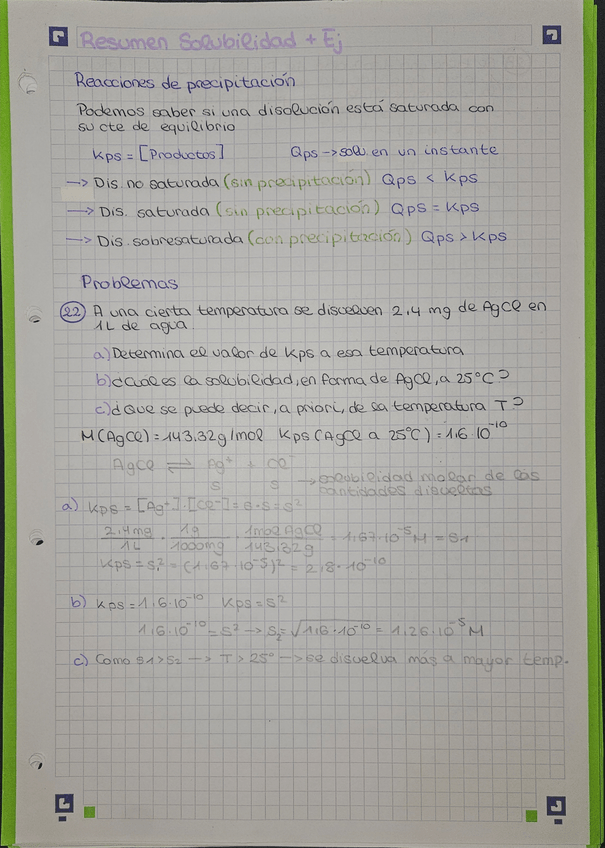 Resumen Solubilidad + Ej
Reacciones de precipitación
Podemos saber si una disolución está saturada con
su cte de equilibrio
Kps = [Productos] Qps → solu. en un instante
→ Dis. no saturada (sin precipitación) Qps < Kps
→ Dis. saturada (sin precipitación) Qps = Kps
→ Dis. sobresaturada (con precipitación) Qps > Kps
Problemas
22 A una cierta temperatura se disuelven 2,4 mg de AgCl en
1L de agua
a) Determina el valor de Kps a esa temperatura
b) ¿Cuál es la solubilidad, en forma de AgCl, a 25°C?
c) ¿Que se puede decir, a priori, de la temperatura T?
M(AgCl) = 143,32g/mol Kps (AgCl a 25°C) = 1,6·10⁻¹⁰
AgCl ⇌ Ag⁺ + Cl⁻
s s → solubilidad molar de las
cantidades disueltas
a) Kps = [Ag⁺]·[Cl⁻] = s·s = s²
2,4mg/1L · 1g/1000mg · 1mol AgCl/143,32g = 1,67·10⁻⁵ M = s1
Kps = s₁² = (1,67·10⁻⁵)² = 2,8·10⁻¹⁰
b) Kps = 1,6·10⁻¹⁰ Kps = s²
1,6·10⁻¹⁰ = s² → s₂ = √1,6·10⁻¹⁰ = 1,26·10⁻⁵ M
c) Como s1 > s2 → T > 25° → se disuelva más a mayor temp.